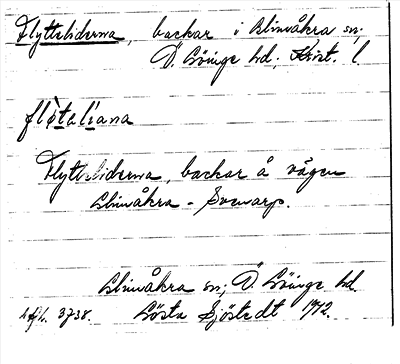 Flytteliderna, backar i Glimåkra sn;
Ö. Göinge hd; Krist. l.
flòtalíana
Flytteliderna, backar å vägen
Glimåkra - Svenarp.
Glimåkra sn; Ö Göinge hd.
3738. Gösta Sjöstedt 1912.